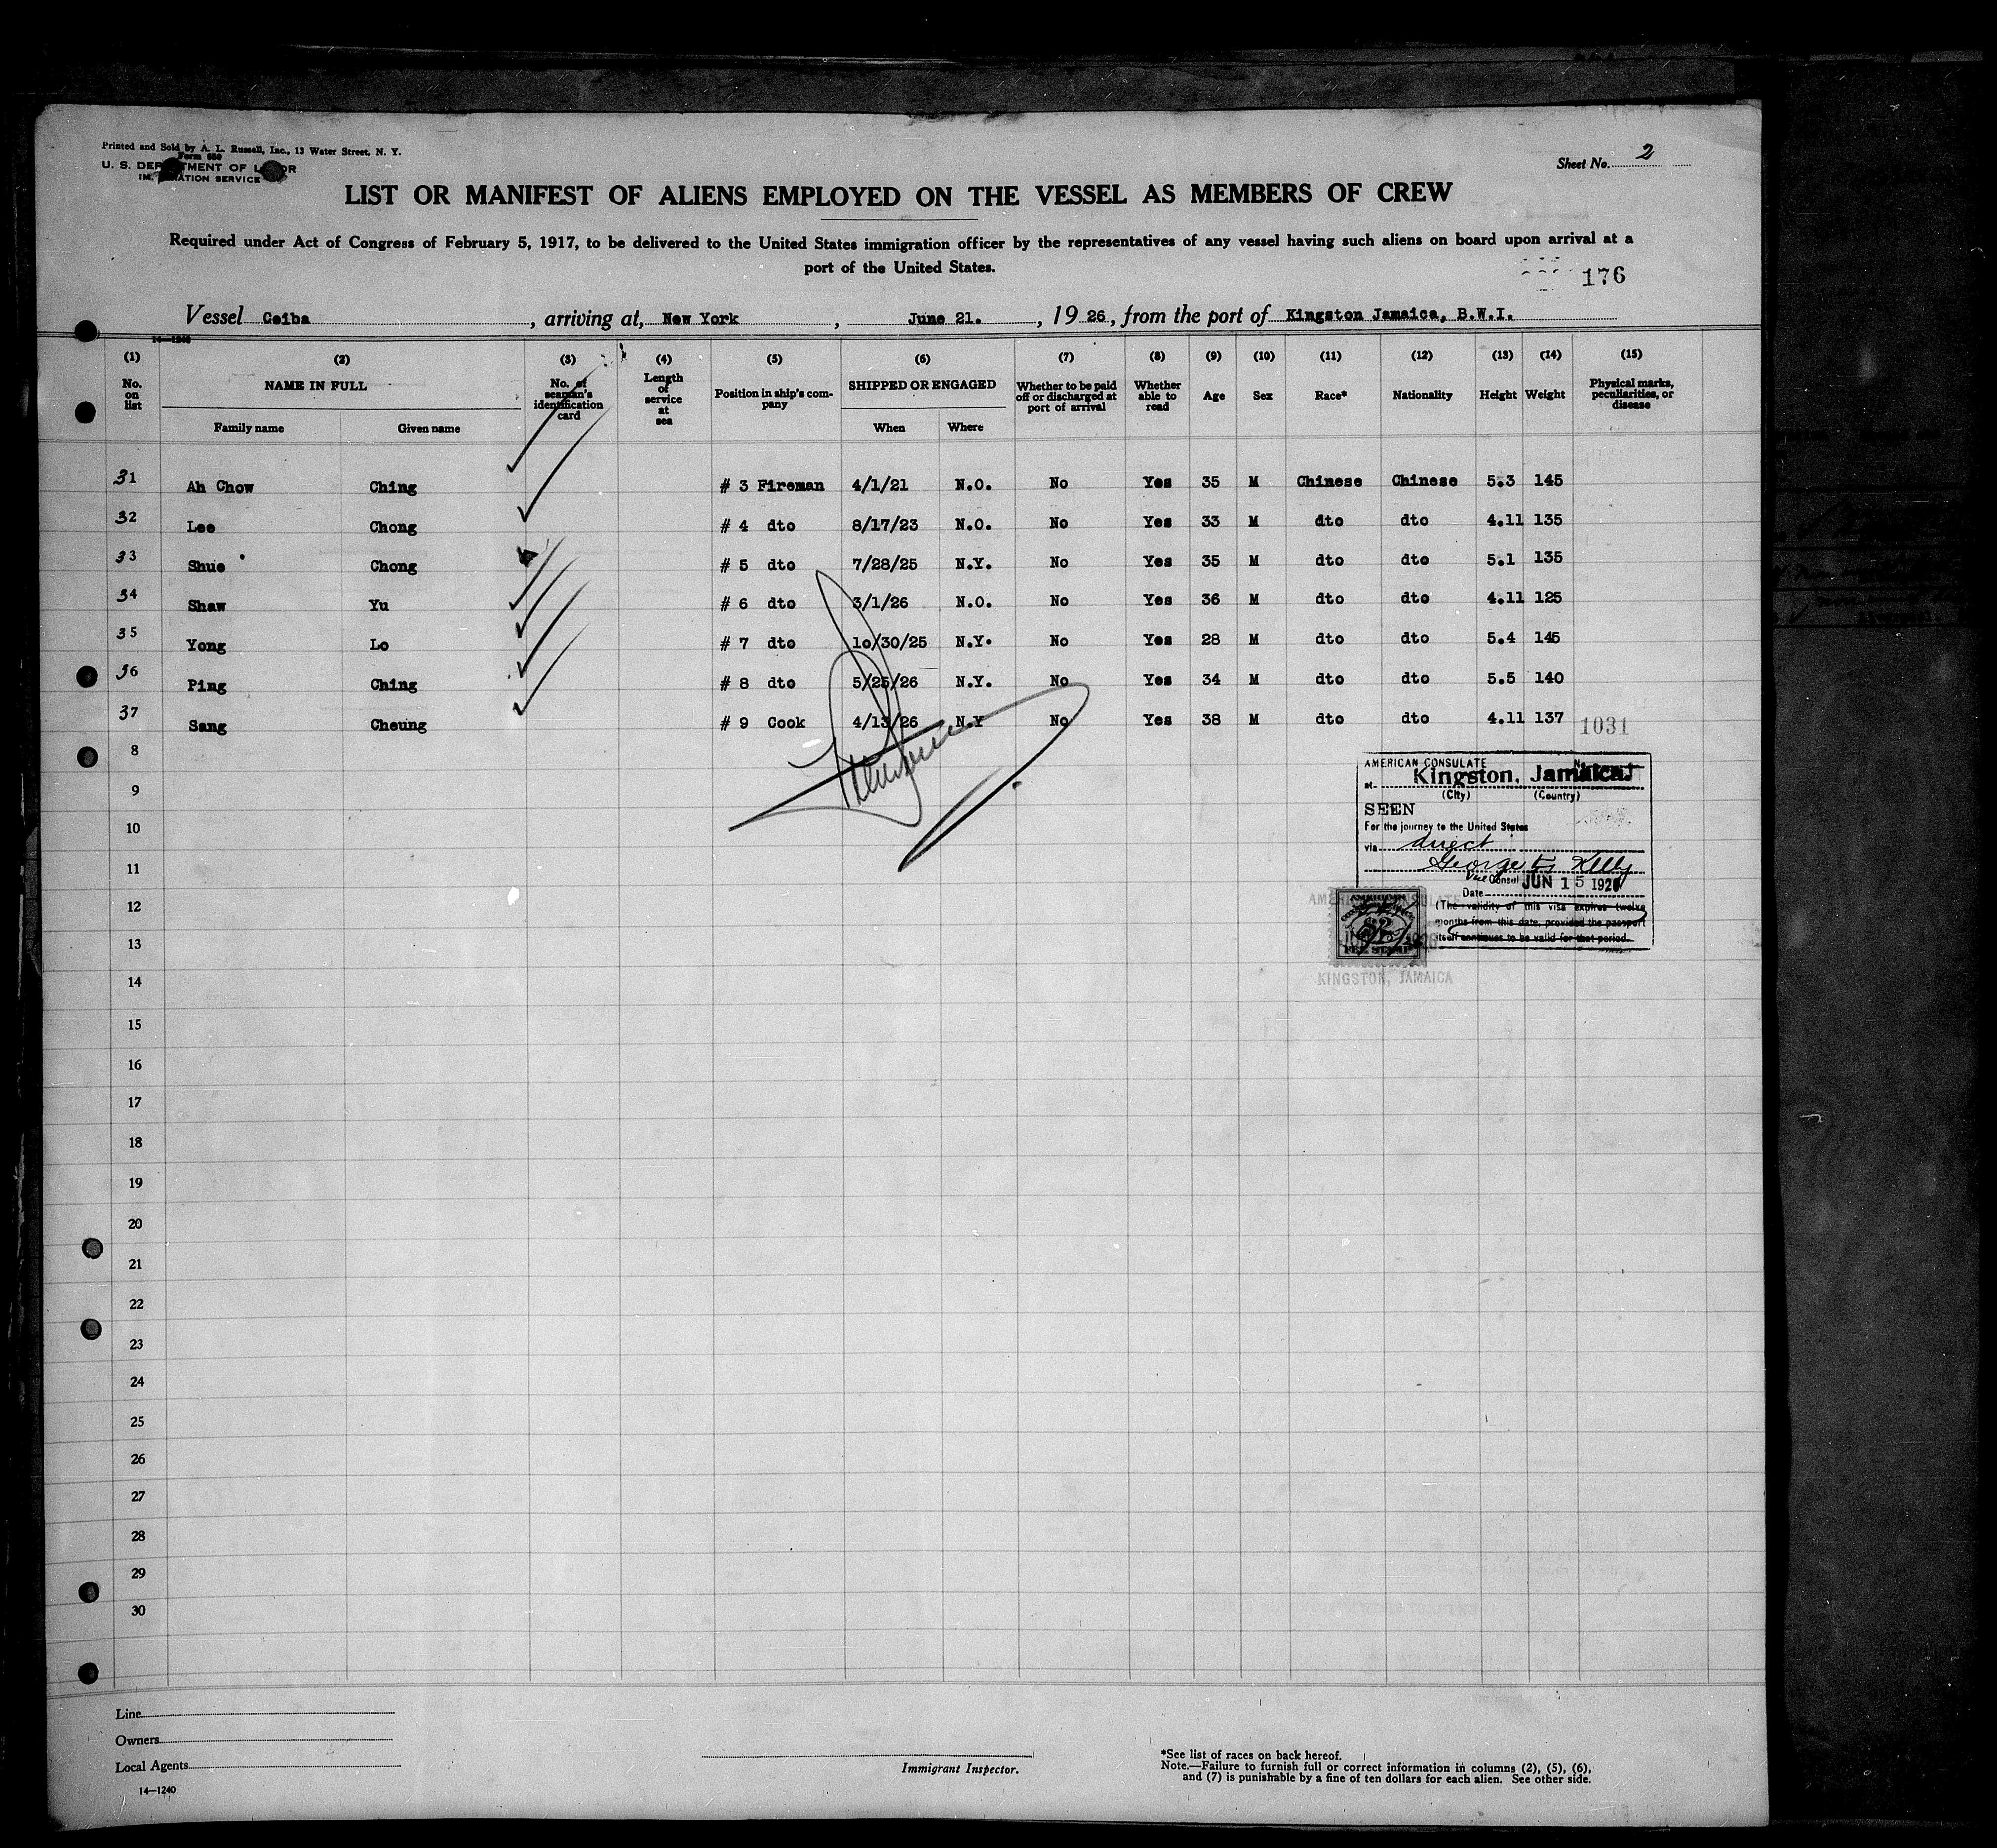 Printed and Sold by A. L. Russell, Inc., 13 Water Street, N. Y.
Form 680
U. S. DEPARTMENT OF LABOR
IMMIGRATION SERVICE
Sheet No. 2
LIST OR MANIFEST OF ALIENS EMPLOYED ON THE VESSEL AS MEMBERS OF CREW
Required under Act of Congress of February 5, 1917, to be delivered to the United States immigration officer by the representatives of any vessel having such aliens on board upon arrival at a
port of the United States.
176
Vessel Ceiba, arriving at, New York, June 21., 19 26, from the port of Kingston Jamaica, B.W.I.
14—1240
(1) (2) (3) (4) (5) (6) (7) (8) (9) (10) (11) (12) (13) (14) (15)
No. on list NAME IN FULL Family name Given name No. of seaman's identification card Length of service at sea Position in ship's company SHIPPED OR ENGAGED When Where Whether to be paid off or discharged at port of arrival Whether able to read Age Sex Race* Nationality Height Weight Physical marks, peculiarities, or disease
31 Ah Chow Ching # 3 Fireman 4/1/21 N.O. No Yes 35 M Chinese Chinese 5.3 145
32 Lee Chong # 4 dto 8/17/23 N.O. No Yes 33 M dto dto 4.11 135
33 Shue Chong # 5 dto 7/28/25 N.Y. No Yes 35 M dto dto 5.1 135
34 Shaw Yu # 6 dto 3/1/26 N.O. No Yes 36 M dto dto 4.11 125
35 Yong Lo # 7 dto 10/30/25 N.Y. No Yes 28 M dto dto 5.4 145
36 Ping Ching # 8 dto 5/25/26 N.Y. No Yes 34 M dto dto 5.5 140
37 Sang Cheung # 9 Cook 4/13/26 N.Y No Yes 38 M dto dto 4.11 137
1031
8
9
10
11
12
13
14
15
16
17
18
19
20
21
22
23
24
25
26
27
28
29
30
AMERICAN CONSULATE
at Kingston, Jamaica
(City) (Country)
SEEN
For the journey to the United States
via direct
George Kelly
Vice Consul
Date JUN 15 1926
(The validity of this visa expires twelve
months from this date, provided the passport
itself continues to be valid for that period.
AMERICAN CONSULATE
AMERICAN
$2
FEE STAMP
KINGSTON, JAMAICA
Line
Owners
Local Agents
14—1240
Immigrant Inspector.
*See list of races on back hereof.
Note.—Failure to furnish full or correct information in columns (2), (5), (6),
and (7) is punishable by a fine of ten dollars for each alien. See other side.